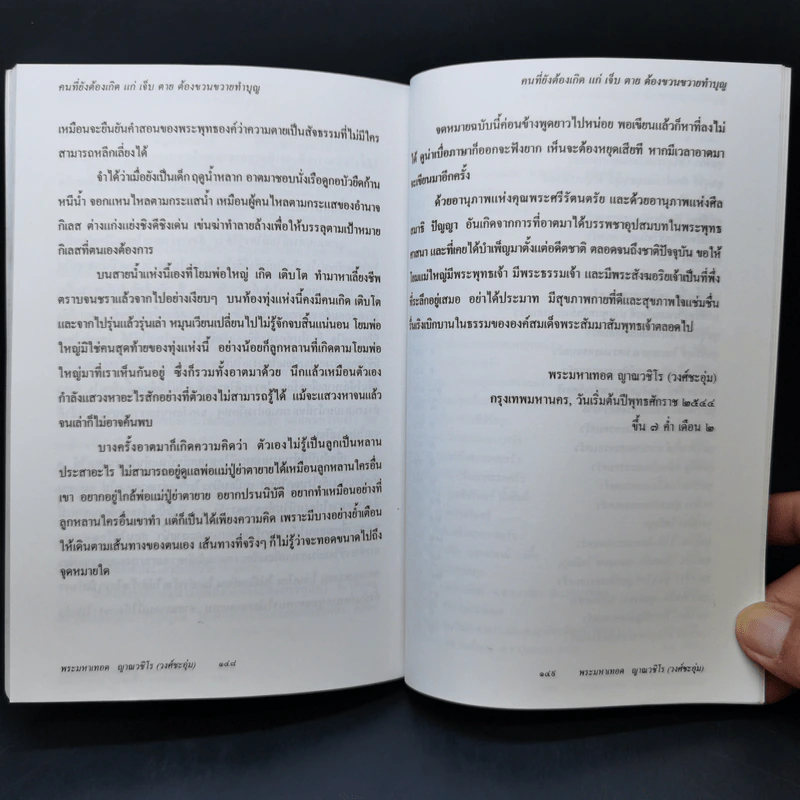 คนที่ยังต้องเกิด แก่ เจ็บ ตาย ต้องขวนขวายทำบุญ
เหมือนจะยืนยันคำสอนของพระพุทธองค์ว่าความตายเป็นสัจธรรมที่ไม่มีใคร
สามารถหลีกเลี่ยงได้
จำได้ว่าเมื่อยังเป็นเด็ก ฤดูน้ำหลาก อาตมาชอบนั่งเรือดูกอบัวยืดก้าน
หนีน้ำ จอกแหนไหลตามกระแสน้ำ เหมือนผู้คนไหลตามกระแสของอำนาจ
กิเลส ต่างแก่งแย่งชิงดีชิงเด่น เข่นฆ่าทำลายล้างเพื่อให้บรรลุตามเป้าหมาย
กิเลสที่ตนเองต้องการ
บนสายน้ำแห่งนี้เองที่โยมพ่อใหญ่ เกิด เติบโต ทำมาหาเลี้ยงชีพ
ตราบจนชราแล้วจากไปอย่างเงียบๆ บนท้องทุ่งแห่งนี้คงมีคนเกิด เติบโต
และจากไปรุ่นแล้วรุ่นเล่า หมุนเวียนเปลี่ยนไปไม่รู้จักจบสิ้นแน่นอน โยมพ่อ
ใหญ่มิใช่คนสุดท้ายของทุ่งแห่งนี้ อย่างน้อยก็ลูกหลานที่เกิดตามโยมพ่อ
ใหญ่มาที่เราเห็นกันอยู่ ซึ่งก็รวมทั้งอาตมาด้วย นึกแล้วเหมือนตัวเอง
กำลังแสวงหาอะไรสักอย่างที่ตัวเองไม่สามารถรู้ได้ แม้จะแสวงหาจนแล้ว
จนเล่าก็ไม่อาจค้นพบ
บางครั้งอาตมาก็เกิดความคิดว่า ตัวเองไม่รู้เป็นลูกเป็นหลาน
ประสาอะไร ไม่สามารถอยู่ดูแลพ่อแม่ปู่ย่าตายายได้เหมือนลูกหลานใครอื่น
เขา อยากอยู่ใกล้พ่อแม่ปู่ย่าตายาย อยากปรนนิบัติ อยากทำเหมือนอย่างที่
ลูกหลานใครอื่นเขาทำ แต่ก็เป็นได้เพียงความคิด เพราะมีบางอย่างย้ำเตือน
ให้เดินตามเส้นทางของตนเอง เส้นทางที่จริงๆ ก็ไม่รู้ว่าจะทอดขนาดไปถึง
จุดหมายใด
พระมหาเทอด ญาณวชิโร (วงศ์ชะอุ่ม) ๑๔๘
คนที่ยังต้องเกิด แก่ เจ็บ ตาย ต้องขวนขวายทำบุญ
จดหมายฉบับนี้ค่อนข้างพูดยาวไปหน่อย พอเขียนแล้วก็หาที่ลงไม่
ได้ ดูน่าเบื่อภาษาก็ออกจะฟังยาก เห็นจะต้องหยุดเสียที หากมีเวลาอาตมา
จะเขียนมาอีกครั้ง
ด้วยอานุภาพแห่งคุณพระศรีรัตนตรัย และด้วยอานุภาพแห่งศีล
สมาธิ ปัญญา อันเกิดจากการที่อาตมาได้บรรพชาอุปสมบทในพระพุทธ
ศาสนา และที่เคยได้บำเพ็ญมาตั้งแต่อดีตชาติ ตลอดจนถึงชาติปัจจุบัน ขอให้
โยมแม่ใหญ่มีพระพุทธเจ้า มีพระธรรมเจ้า และมีพระสังฆอริยเจ้าเป็นที่พึ่ง
ที่ระลึกอยู่เสมอ อย่าได้ประมาท มีสุขภาพกายที่ดีและสุขภาพใจแช่มชื่น
รื่นเริงเบิกบานในธรรมขององค์สมเด็จพระสัมมาสัมพุทธเจ้าตลอดไป
พระมหาเทอด ญาณวชิโร (วงศ์ชะอุ่ม)
กรุงเทพมหานคร, วันเริ่มต้นปีพุทธศักราช ๒๕๔๔
ขึ้น ๗ ค่ำ เดือน ๒
๑๔๙ พระมหาเทอด ญาณวชิโร (วงศ์ชะอุ่ม)